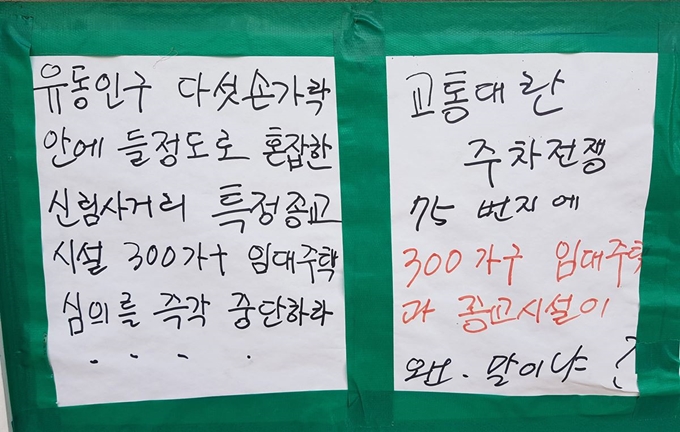 유동인구 다섯손가락
안에 들정도로 혼잡한
신림사거리 특정종교
시설 300가十 임대주택
심의를 즉각 중단하라
· · · ·
교통대란
주차전쟁
75 번지에
300가구 임대주택
과 종교시설이
왠 . 말이냐 ?